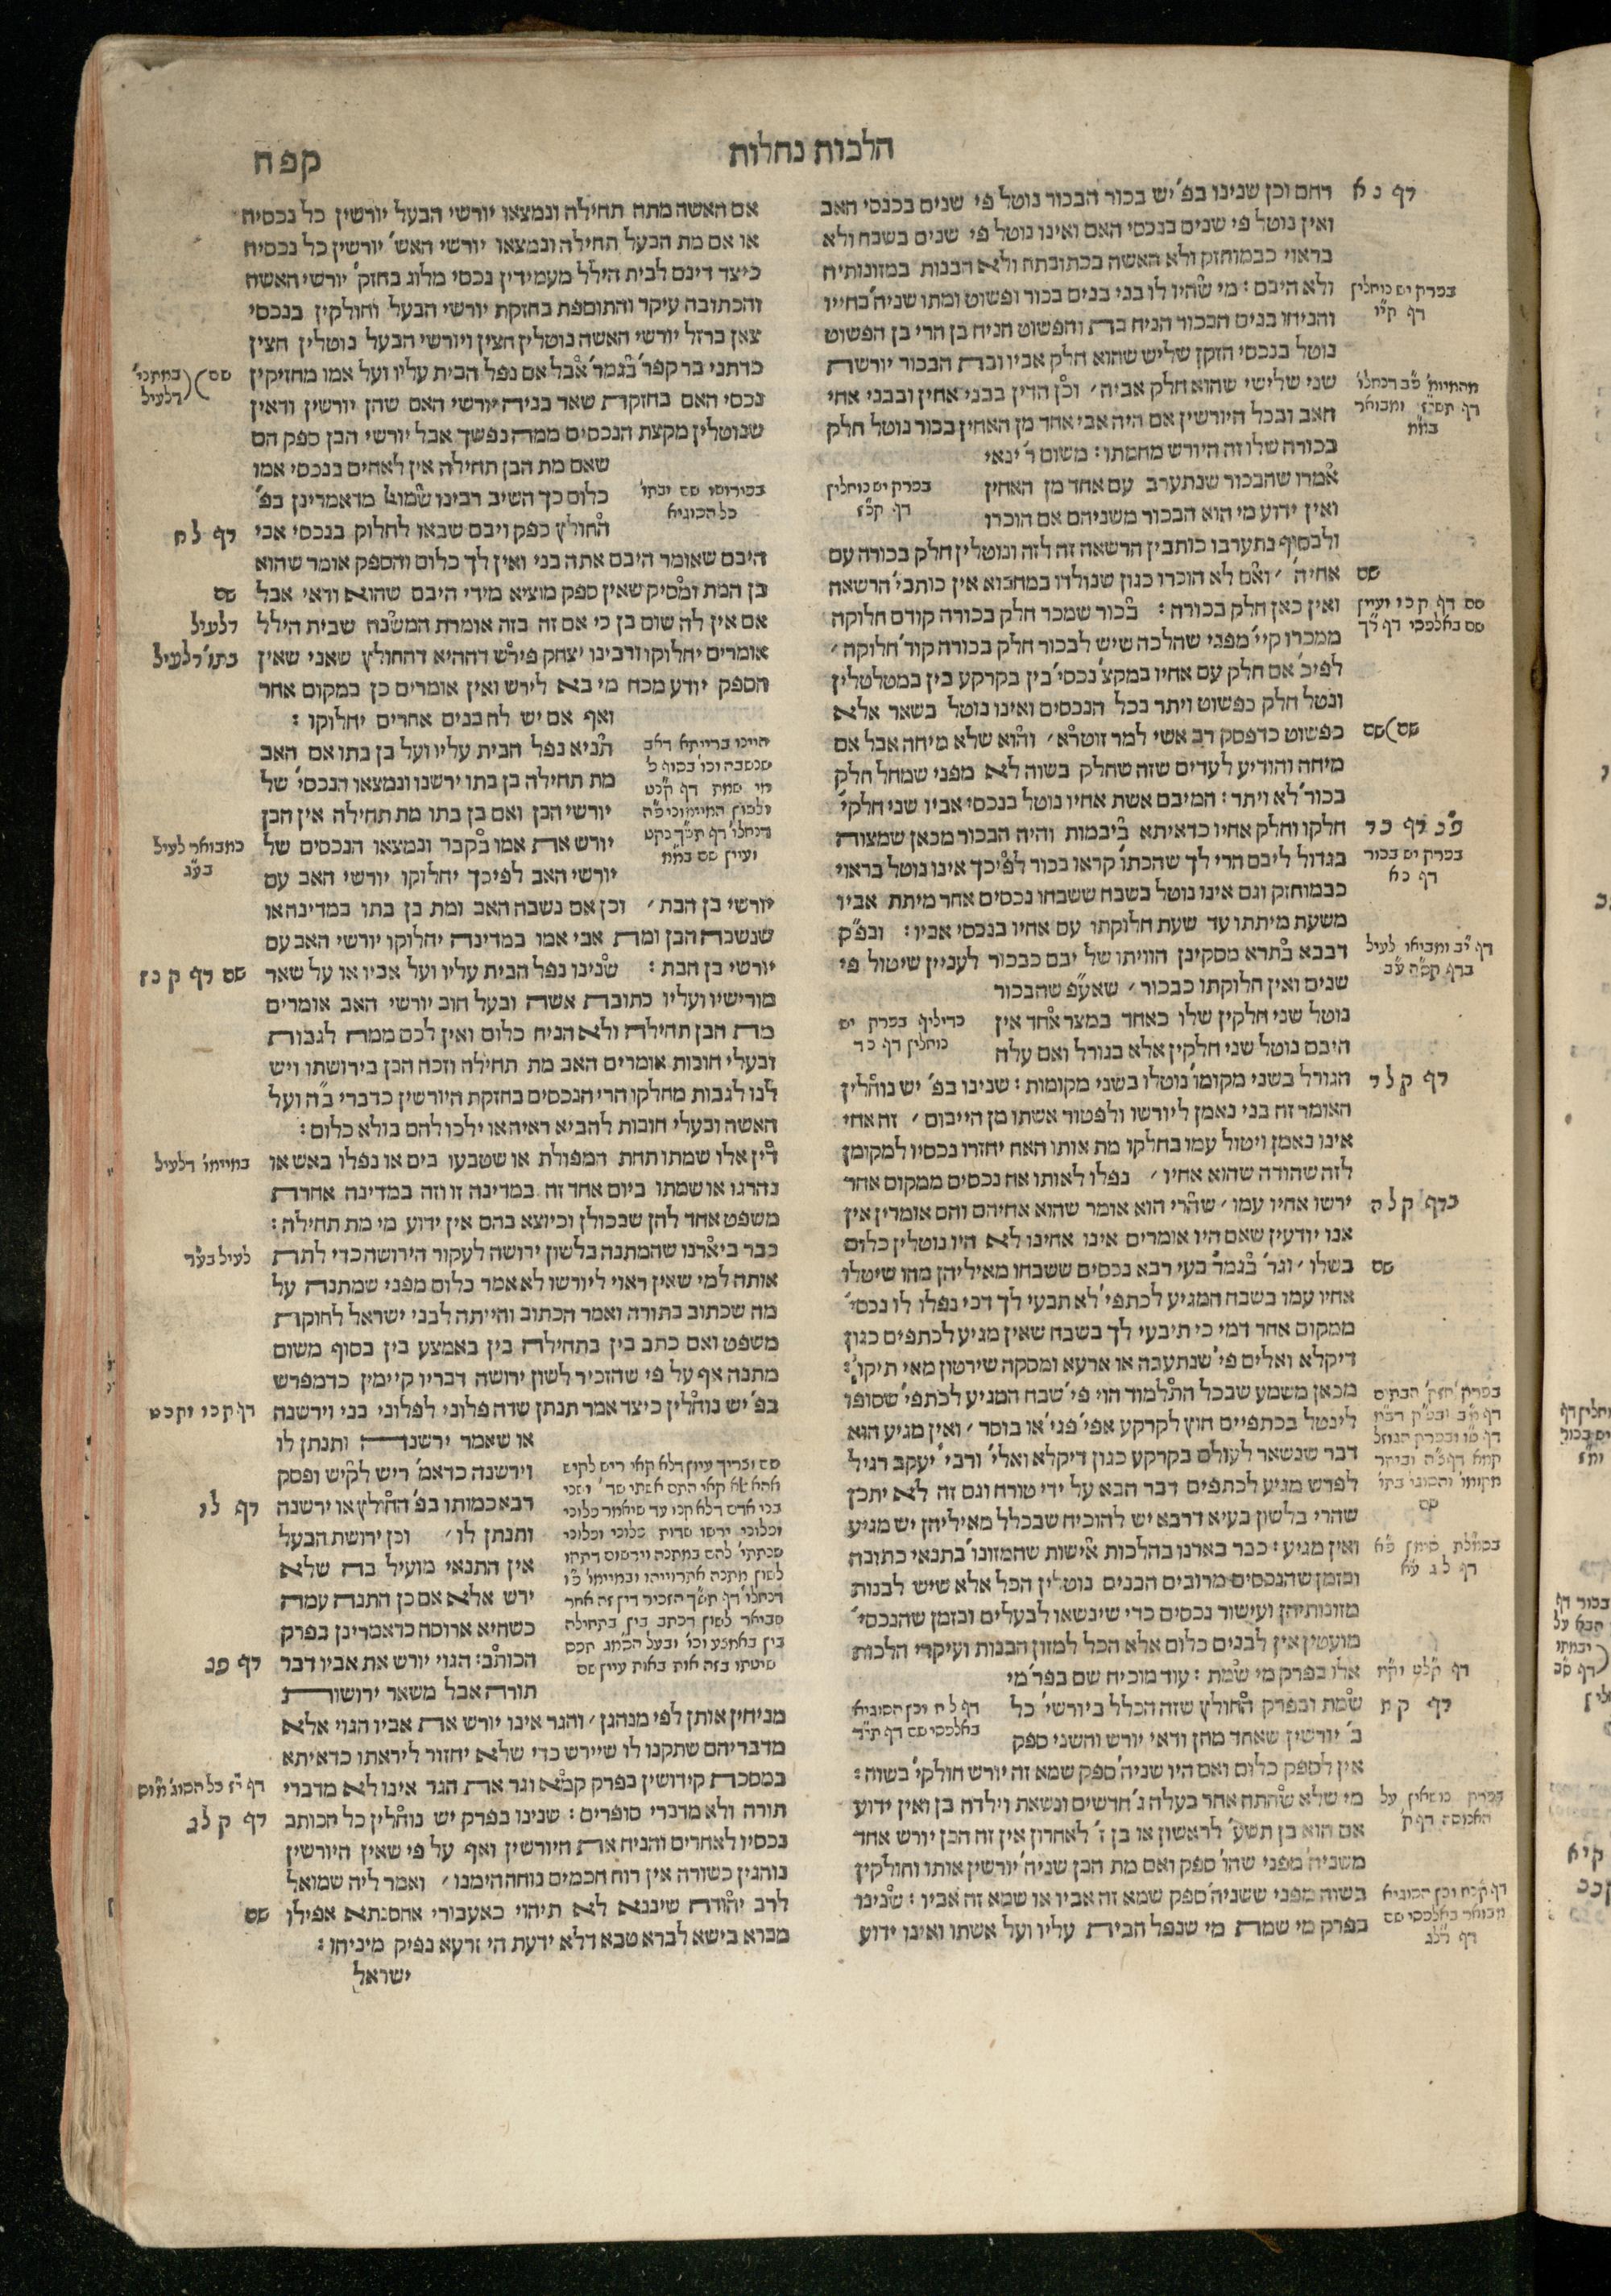 הלכות נחלות
קפח
רחם וכן שנינו בפ׳ יש בכור הבכור נוטל פי שנים בנכסי האב
ואין נוטל פי שנים בנכסי האם ואינו נוטל פי שנים בשבח ולא
בראוי כבמוחזק ולא האשה בכתובתה ולא הבנות במזונותיה
ולא היבם : מי שהיו לו בני בנים בכור ופשוט ומתו שניה׳ בחייו
והניחו בנים הבכור הניח בת והפשוט הניח בן הרי בן הפשוט
נוטל בנכסי הזקן שליש שהוא חלק אביו ובת הבכור יורשת
שני שלישי שהוא חלק אביה׳ וכן הדין בבני אחין ובבני אחי
האב ובכל היורשין אם היה אבי אחד מן האחין בכור נוטל חלק
בכורה שלו זה היורש מחמתו : משום ר׳ ינאי
אמרו שהבכור שנתערב עם אחד מן האחין
ואין ידוע מי הוא הבכור משניהם אם הוכרו
ולבסוף נתערבו כותבין הרשאה זה לזה ונוטלין חלק בכורה עם
אחיה׳ ׳ ואם לא הוכרו כגון שנולדו במחבוא אין כותבי׳ הרשאה
ואין כאן חלק בכורה : בכור שמכר חלק בכורה קודם חלוקה
ממכרו קיי׳ מפני שהלכה שיש לבכור חלק בכורה קוד׳ חלוקה ׳
לפיכ׳ אם חלק עם אחיו במקצ׳ נכסי׳ בין בקרקע בין במטלטלין
ונטל חלק כפשוט ויתר בכל הנכסים ואינו נוטל בשאר אלא
כפשוט כדפסק רב אשי למר זוטרא ׳ והוא שלא מיחה אבל אם
מיחה והודיע לעדים שזה שחלק בשוה לא מפני שמחל חלק
בכור׳ לא ויתר : המיבם אשת אחיו נוטל בנכסי אביו שני חלקי׳
חלקו וחלק אחיו כדאיתא ביבמות והיה הבכור מכאן שמצוה
בגדול ליבם הרי לך שהכתו׳ קראו בכור לפיכך אינו נוטל בראוי
כבמוחזק וגם אינו נוטל בשבח ששבחו נכסים אחר מיתת אביו
משעת מיתתו עד שעת חלוקתו עם אחיו בנכסי אביו : ובפ״ק
דבבא בתרא מסקינן הוויתו של יבם כבכור לעניין שיטול פי
שנים ואין חלוקתו כבכור ׳ שאע״פ שהבכור
נוטל שני חלקין שלו כאחד במצר אחד אין
היבם נוטל שני חלקין אלא בגורל ואם עלה
הגורל בשני מקומו׳ נוטלו בשני מקומות : שנינו בפ׳ יש נוחלין
האומר זה בני נאמן ליורשו ולפטור אשתו מן הייבום ׳ זה אחי
אינו נאמן ויטול עמו בחלקו מת אותו האח יחזרו נכסיו למקומן
לזה שהודה שהוא אחיו ׳ נפלו לאותו אח נכסים ממקום אחר
ירשו אחיו עמו ׳ שהרי הוא אומר שהוא אחיהם והם אומרין אין
אנו יודעין שאם היו אומרים אינו אחינו לא היו נוטלין כלום
בשלו ׳ וגר׳ בגמר׳ בעי רבא נכסים ששבחו מאיליהן מהו שיטלו
אחיו עמו בשבח המגיע לכתפי׳ לא תבעי לך דכי נפלו לו נכסי׳
ממקום אחר דמי כי תיבעי לך בשבח שאין מגיע לכתפים כגון
דיקלא ואלים פי׳ שנתעבה או ארעא ומסקה שירטון מאי תיקו :
מכאן משמע שבכל התלמוד הוי פי׳ שבח המגיע לכתפי׳ שסופו
לינטל בכתפיים חוץ לקרקע אפי׳ פגי׳ או בוסר ׳ ואין מגיע הוא
דבר שנשאר לעולם בקרקע כגון דיקלא ואלי׳ ורבי׳ יעקב רגיל
לפרש מגיע לכתפים דבר הבא על ידי טורח וגם זה לא יתכן
שהרי בלשון בעיא דרבא יש להוכיח שבכלל מאיליהן יש מגיע
ואין מגיע : כבר בארנו בהלכות אישות שהמזונו׳ בתנאי כתובה
ובזמן שהנכסים מרובים הבנים נוטלין הכל אלא שיש לבנות
מזונותיהן ועישור נכסים כדי שינשאו לבעלים ובזמן שהנכסי׳
מועטין אין לבנים כלום אלא הכל למזון הבנות ועיקרי הלכות
אלו בפרק מי שמת : עוד מוכיח שם בפר׳ מי
שמת ובפרק החולץ שזה הכלל ביורשי׳ כל
ב׳ יורשין שאחד מהן ודאי יורש והשני ספק
אין לספק כלום ואם היו שניה׳ ספק שמא זה יורש חולקי׳ בשוה :
מי שלא שהתה אחר בעלה ג׳ חדשים ונשאת וילדה בן ואין ידוע
אם הוא בן תשע׳ לראשון או בן ז׳ לאחרון אין זה הבן יורש אחד
משניה׳ מפני שהו׳ ספק ואם מת הבן שניה׳ יורשין אותו וחולקין
בשוה מפני ששניה׳ ספק שמא זה אביו או שמא זה אביו : שנינו
בפרק מי שמת מי שנפל הבית עליו ועל אשתו ואינו ידוע
דף נ א
בפרק יש נוחלין
דף קי״ו
שם
שם דף ק כ ו ועיין
שם באלפסי דף ל״ך
שם) שם
פ״ב דף כ ד
בפרק יש בכור
דף נ א
בפרק יש נוחלין
דף קכ״ז
כדיליף בפרק יש
נוחלין דף כ ד
דף ק ל ד
בדף ק ל ה
שם
דף ק ח
דף ל ח וכן הסוגיא
באלפסי שם דף ת״ד
בפרק נושאין על
האנוסה דף ק׳
אם האשה מתה תחילה ונמצאו יורשי הבעל יורשין כל נכסיה
או אם מת הבעל תחילה ונמצאו יורשי האש׳ יורשין כל נכסיה
כיצד דינם לבית הילל מעמידין נכסי מלוג בחזק׳ יורשי האשה
והכתובה עיקר והתוספת בחזקת יורשי הבעל וחולקין בנכסי
צאן ברזל יורשי האשה נוטלין חצין ויורשי הבעל נוטלין חצין
כדתני בר קפר׳ בגמר׳ אבל אם נפל הבית עליו ועל אמו מחזיקין
נכסי האם בחזקת שאר בניה יורשי האם שהן יורשין ודאין
שנוטלין מקצת הנכסים ממה נפשך אבל יורשי הבן ספק הם
שאם מת הבן תחילה אין לאחים בנכסי אמו
כלום כך השיב רבינו שמוא׳ מדאמרינן בפ׳
החולץ ספק ויבם שבאו לחלוק בנכסי אבי
היבם שאומר היבם אתה בני ואין לך כלום והספק אומר שהוא
בן המת ומסיק שאין ספק מוציא מידי היבם שהוא ודאי אבל
אם אין לה שום בן כי אם זה בזה אומרת המשנה שבית הילל
אומרים יחלוקו ורבינו יצחק פירש דההיא דהחולץ שאני שאין
הספק יודע מכח מי בא לירש ואין אומרים כן במקום אחר
ואף אם יש לה בנים אחרים יחלוקו :
תניא נפל הבית עליו ועל בן בתו אם האב
מת תחילה בן בתו ירשנו ונמצאו הנכסי׳ של
יורשי הבן ואם בן בתו מת תחילה אין הבן
יורש את אמו בקבר ונמצאו הנכסים של
יורשי האב לפיכך יחלוקו יורשי האב עם
יורשי בן הבת ׳ וכן אם נשבה האב ומת בן בתו במדינה או
שנשבה הבן ומת אבי אמו במדינה יחלוקו יורשי האב עם
יורשי בן הבת : שנינו נפל הבית עליו ועל אביו או על שאר
מורישיו ועליו כתובת אשה ובעל חוב יורשי האב אומרים
מת הבן תחילה ולא הניח כלום ואין לכם ממה לגבות
ובעלי חובות אומרים האב מת תחילה וזכה הבן בירושתו ויש
לנו לגבות מחלקו הרי הנכסים בחזקת היורשין כדברי ב״ה ועל
האשה ובעלי חובות להביא ראיה או ילכו להם בולא כלום :
דין אלו שמתו תחת המפולת או שטבעו בים או נפלו באש או
נהרגו או שמתו ביום אחד זה במדינה זו וזה במדינה אחרת
משפט אחד להן שבכולן וכיוצא בהם אין ידוע מי מת תחילה :
כבר ביארנו שהמתנה בלשון ירושה לעקור הירושה כדי לתת
אותה למי שאין ראוי ליורשו לא אמר כלום מפני שמתנה על
מה שכתוב בתורה ואמר הכתוב והייתה לבני ישראל לחוקת
משפט ואם כתב בין בתחילה בין באמצע בין בסוף משום
מתנה אף על פי שהזכיר לשון ירושה דבריו קיימין כדמפרש
בפ׳ יש נוחלין כיצד אמר תנתן שדה פלוני לפלוני בני וירשנה
או שאמר ירשנה ותנתן לו
וירשנה כדאמ׳ ריש לקיש ופסק
רבא כמותו בפ׳ החולץ או ירשנה
ותנתן לו ׳ וכן ירושת הבעל
אין התנאי מועיל בה שלא
ירש אלא אם כן התנה עמה
כשהיא ארוסה כדאמרינן בפרק
הכותב : הגוי יורש את אביו דבר
תורה אבל משאר ירושות
מניחין אותן לפי מנהגן ׳ והגר אינו יורש את אביו הגוי אלא
מדבריהם שתקנו לו שיירש כדי שלא יחזור ליראתו כדאיתא
במסכת קידושין בפרק קמא וגר את הגר אינו לא מדברי
תורה ולא מדברי סופרים : שנינו בפרק יש נוחלין כל הכותב
נכסיו לאחרים והניח את היורשין ואף על פי שאין היורשין
נוהגין כשורה אין רוח חכמים נוחה הימנו ׳ ואמר ליה שמואל
לרב יהודה שיננא לא תיהוי באעבורי אחסנתא אפילו
מברא בישא לברא טבא דלא ידעת הי זרעא נפיק מיניהו :
ישראל
דף ל ח
שם
דלעיל
בתו׳ דלעיל
כמבואר לעיל
בע״ב
שם דף ק נ ז
במיימו׳ דלעיל
לעיל בע״ד
דף קכו וקכט
דף ל ו
דף פג
דף ק ל ג
שם